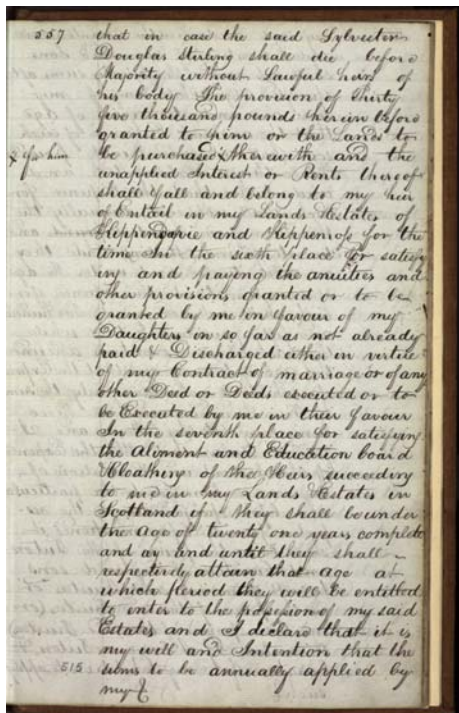 557
that in case the said Sylvester
Douglas Stirling shall die before
Majority without Lawful heirs of
his body The provision of Thirty
five thousand pounds herein before
granted to him or the Lands to
be purchased & therewith and the
& for him
unapplied Interest or Rents thereof
shall fall and belong to my heir
of Entail in my Lands & Estates of
Kippendavie and Kippenross for the
time In the sixth place for satisfy
ing and paying the anuities and
other provisions granted or to be
granted by me in favour of my
Daughters in so far as not already
paid & Discharged either in virtue
of my Contract of marriage or of any
other Deed or Deeds executed or to
be Executed by me in their favour
In the seventh place for satisfying
the Aliment and Education board
& Cloathing of the Heirs succeeding
to me in my Lands & Estates in
Scotland if they shall be under
the age of twenty one years complete
and ay and until they shall
respectively attain that age at
which period they will be entitled
to enter to the possession of my said
Estates and I declare that it is
my will and Intention that the
515
sums to be annually applied by
my